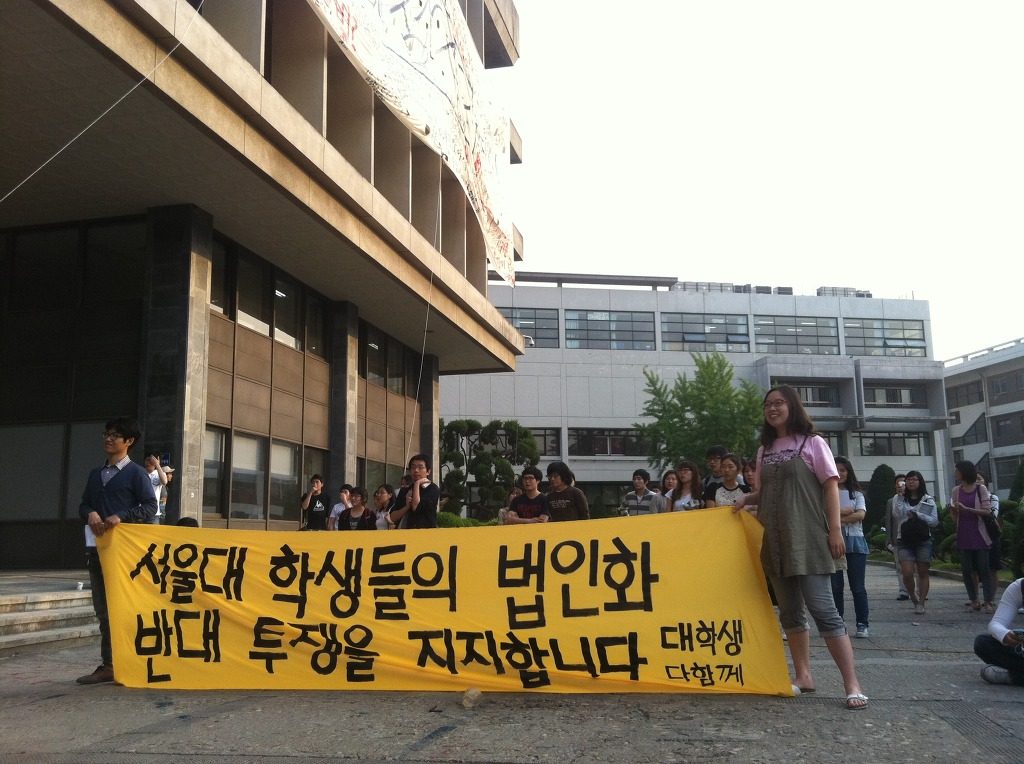 서울대 학생들의 법인화
반대 투쟁을 지지합니다 대학생
다함께